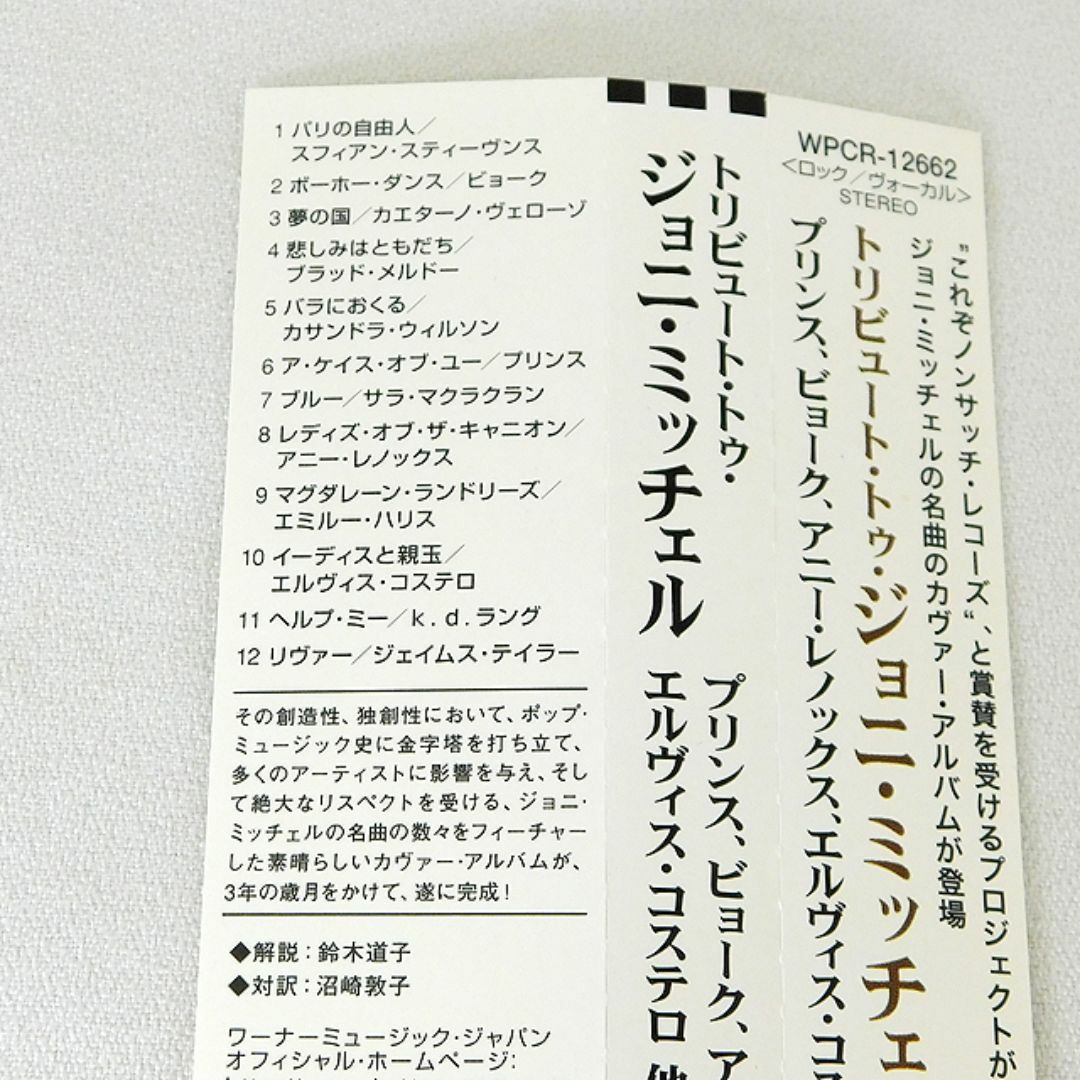 1 パリの自由人／
スフィアン・スティーヴンス
2 ボーホー・ダンス／ビョーク
3 夢の国／カエターノ・ヴェローゾ
4 悲しみはともだち／
ブラッド・メルドー
5 バラにおくる／
カサンドラ・ウィルソン
6 ア・ケイス・オブ・ユー／プリンス
7 ブルー／サラ・マクラクラン
8 レディズ・オブ・ザ・キャニオン／
アニー・レノックス
9 マグダレーン・ランドリーズ／
エミルー・ハリス
10 イーディスと親玉／
エルヴィス・コステロ
11 ヘルプ・ミー／k.d.ラング
12 リヴァー／ジェイムス・テイラー
その創造性、独創性において、ポップ・
ミュージック史に金字塔を打ち立て、
多くのアーティストに影響を与え、そし
て絶大なリスペクトを受ける、ジョニ・
ミッチェルの名曲の数々をフィーチャー
した素晴らしいカヴァー・アルバムが、
3年の歳月をかけて、遂に完成！
◆解説：鈴木道子
◆対訳：沼崎敦子
ワーナーミュージック・ジャパン
オフィシャル・ホームページ：
トリビュート・トゥ・
ジョニ・ミッチェル
プリンス、ビョーク、ア
エルヴィス・コステロ 他
WPCR-12662
＜ロック／ヴォーカル＞
STEREO
"これぞノンサッチ・レコーズ"、と賞賛を受けるプロジェクトが
ジョニ・ミッチェルの名曲のカヴァー・アルバムが登場
トリビュート・トゥ・ジョニ・ミッチェ
プリンス、ビョーク、アニー・レノックス、エルヴィス・コス